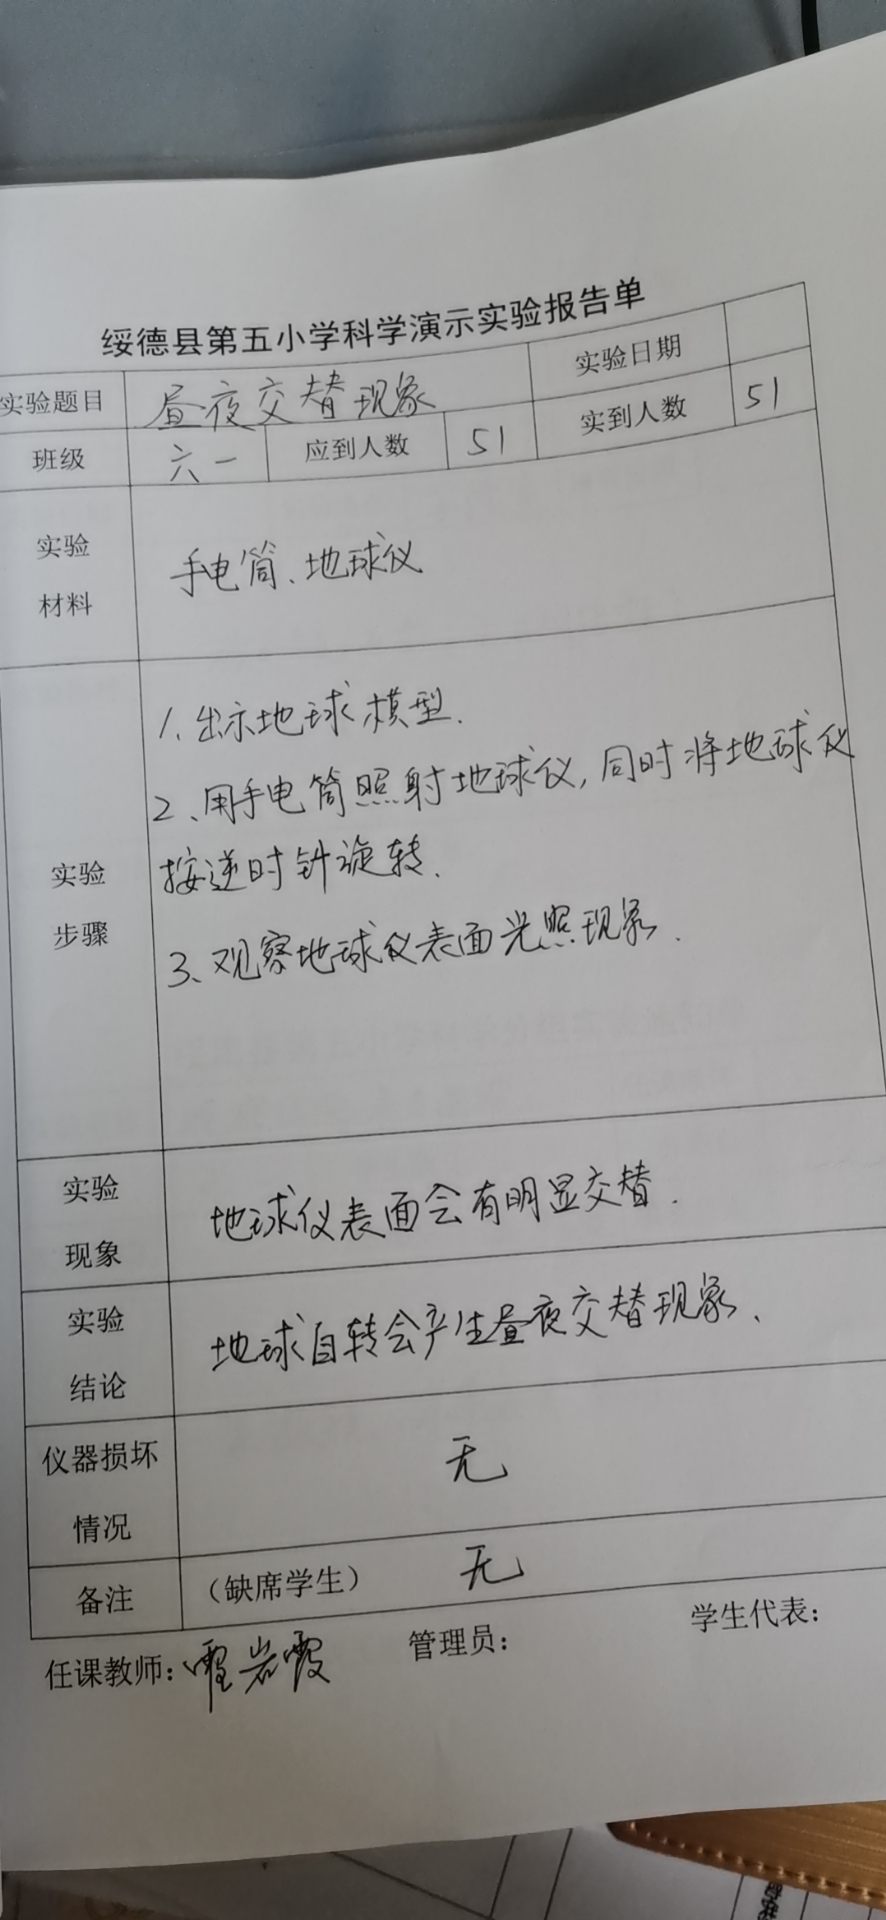 绥德县第五小学科学演示实验报告单
实验题目 昼夜交替现象 实验日期
班级 六一 应到人数 51 实到人数 51
实验
材料
手电筒、地球仪
1、出示地球模型.
2、用手电筒照射地球仪,同时将地球仪
按逆时针旋转.
3、观察地球仪表面光照现象.
实验
步骤
实验
现象
地球仪表面会有明显交替.
实验
结论
地球自转会产生昼夜交替现象、
仪器损坏
情况
无
备注 （缺席学生） 无
任课教师: 岩霞 管理员: 学生代表: